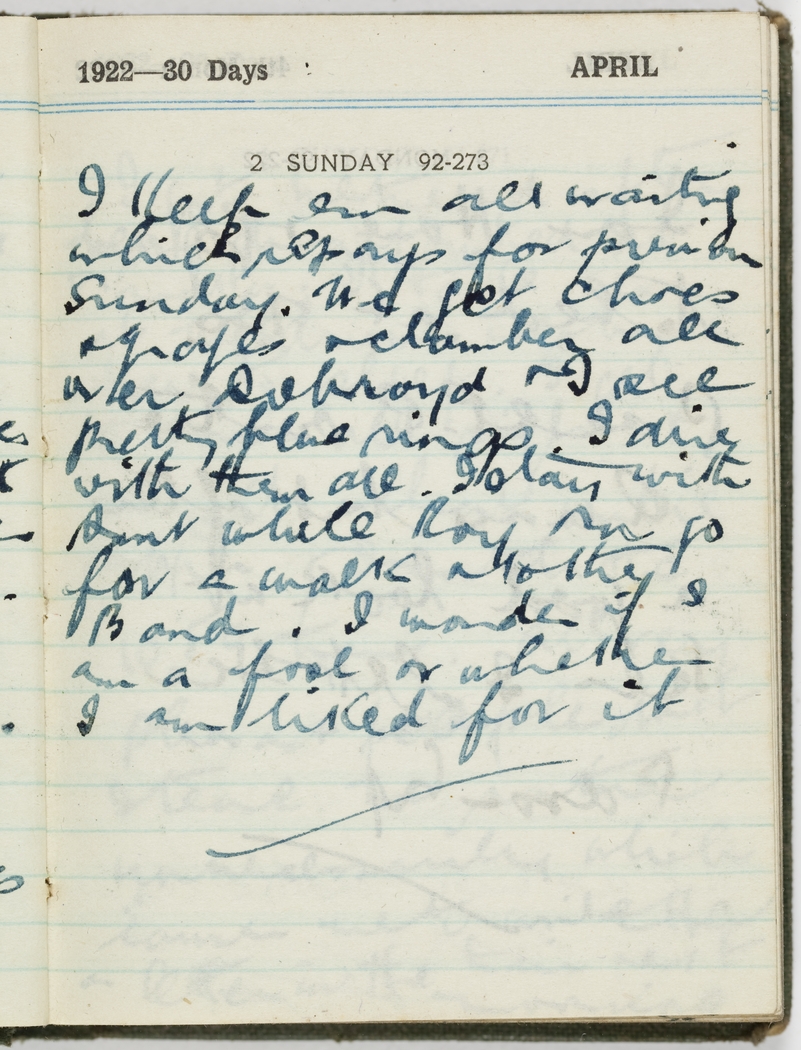 1922—30 Days APRIL
2 SUNDAY 92-273
I keep em all waiting
which repays for previous
Sunday. We get choes
& grapes & clamber all
over & I see
pretty blue rings. I dine
with them all. I stay with
Aunt while Roy go
for a walk & to the
Band. I wonder if I
am a fool or whether
I am liked for it